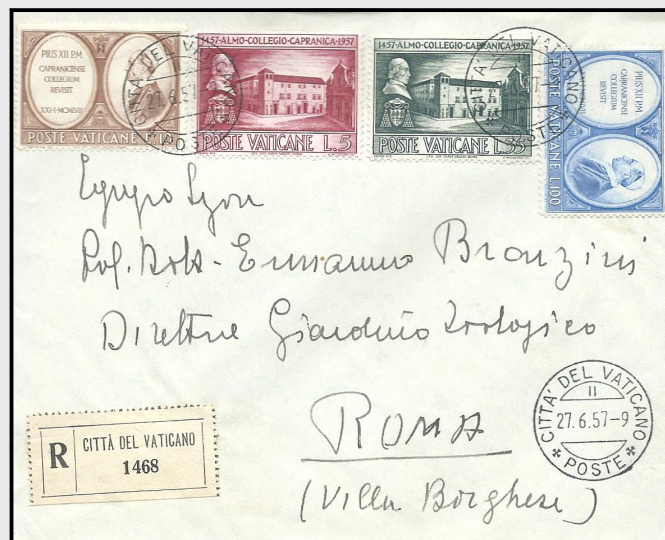 PIUS XII P.M.
CAPRANICENSE
COLLEGIUM
REVISIT
XXI-I-MCMLVII
POSTE VATICANE
1457·ALMO·COLLEGIO·CAPRANICA·1957
POSTE VATICANE L.5
1457·ALMO·COLLEGIO·CAPRANICA·1957
POSTE VATICANE L.35
PIUS XII P.M.
CAPRANICENSE
COLLEGIUM
REVISIT
POSTE VATICANE L.100
CITTA' DEL VATICANO
27.6.57
POSTE
CITTA' DEL VATICANO
POSTE
Egregio Signor
Prof. Dott. Ermanno Bronzini
Direttore Giardino Zoologico
ROMA
(Villa Borghese)
CITTA' DEL VATICANO
II
27.6.57-9
POSTE
R
CITTÀ DEL VATICANO
1468